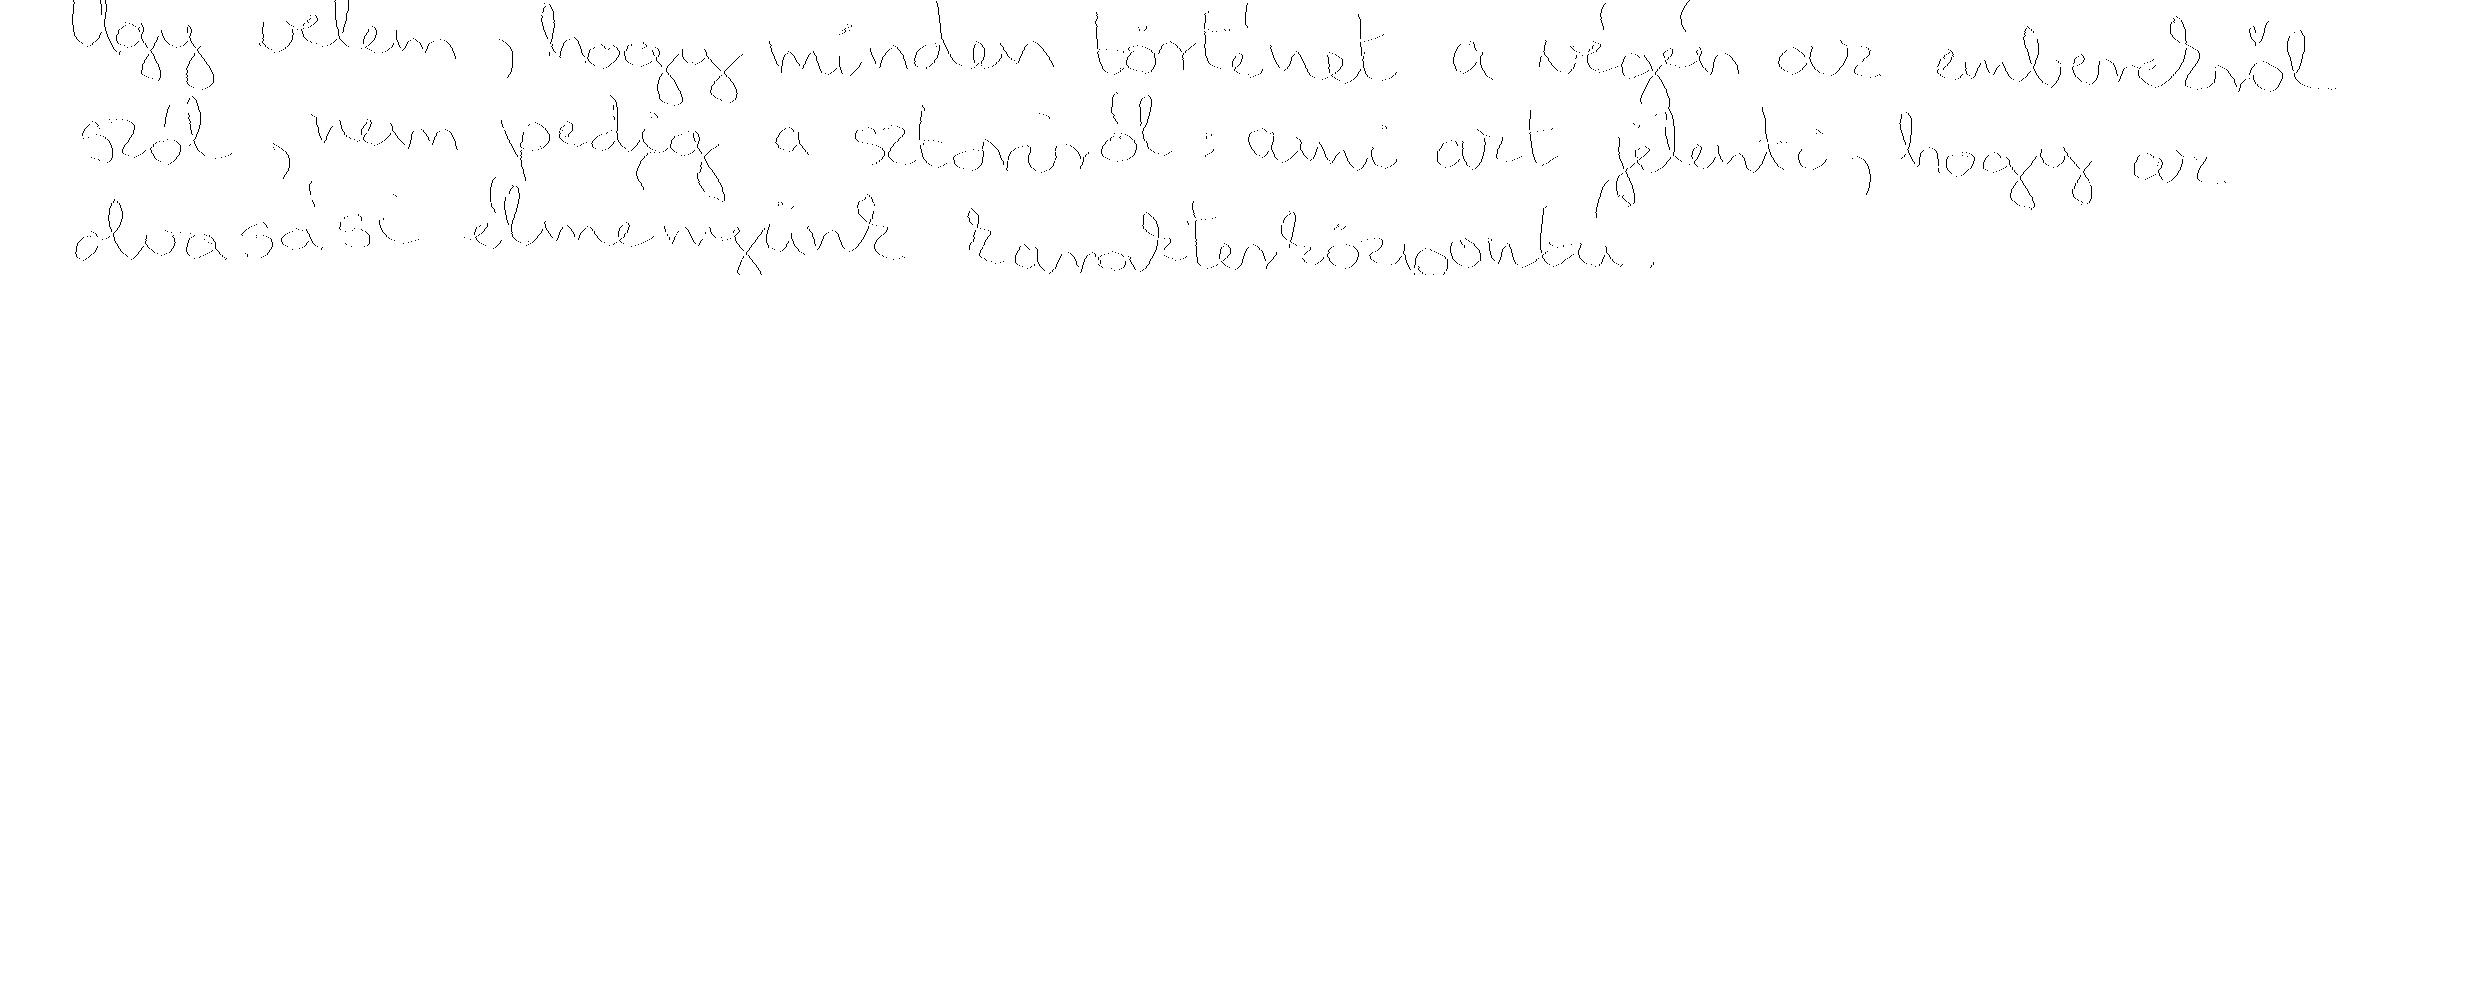 Úgy vélem, hogy minden történet a végén az emberekről
szól, nem pedig a sztoriról: ami azt jelenti, hogy az
olvasási élményünk karakterközpontú.